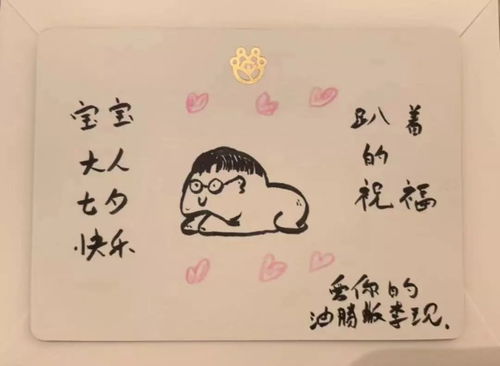 宝宝
大人
七夕
快乐
趴着
的
祝福
爱你的
油腻版李现.